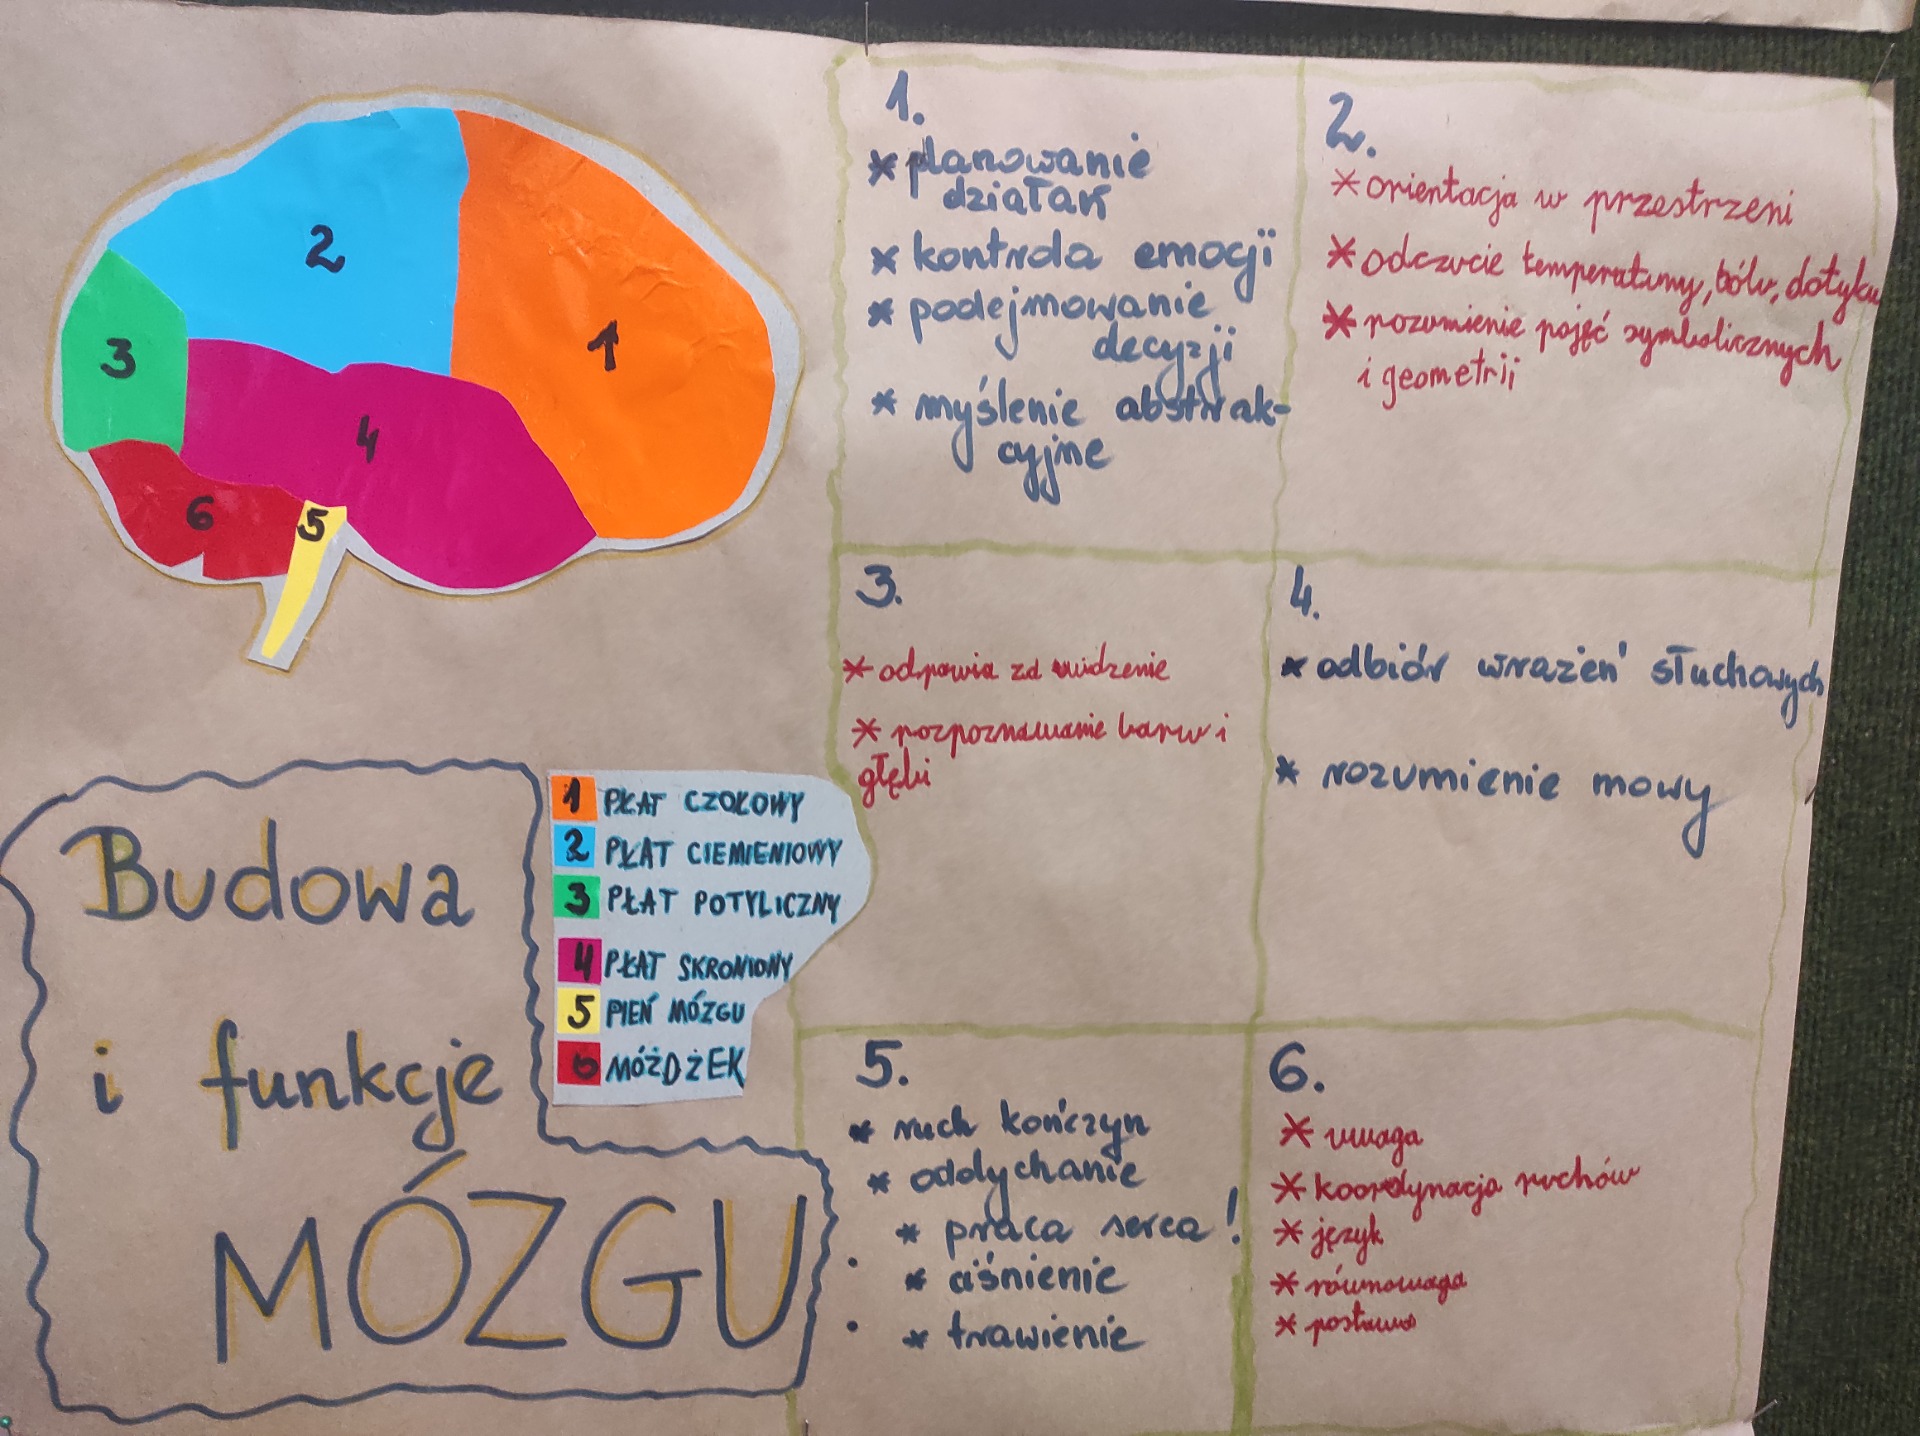 2
1
3
4
6
5
Budowa
i funkcje
MÓZGU
1 PŁAT CZOŁOWY
2 PŁAT CIEMIENIOWY
3 PŁAT POTYLICZNY
4 PŁAT SKRONIOWY
5 PIEŃ MÓZGU
6 MÓŻDŻEK
1.
* planowanie
działań
* kontrola emocji
* podejmowanie
decyzji
* myślenie abstrak-
cyjne
2.
* orientacja w przestrzeni
* odczucie temperatury, bólu, dotyku
* rozumienie pojęć symbolicznych
i geometrii
3.
* odpowia za widzenie
* rozpoznawanie barw i
głębi
4.
* odbiór wrażeń słuchowych
* rozumienie mowy
5.
* ruch kończyn
* oddychanie
* praca serca!
* ciśnienie
* trawienie
6.
* uwaga
* koordynacja ruchów
* język
* równowaga
* postawa